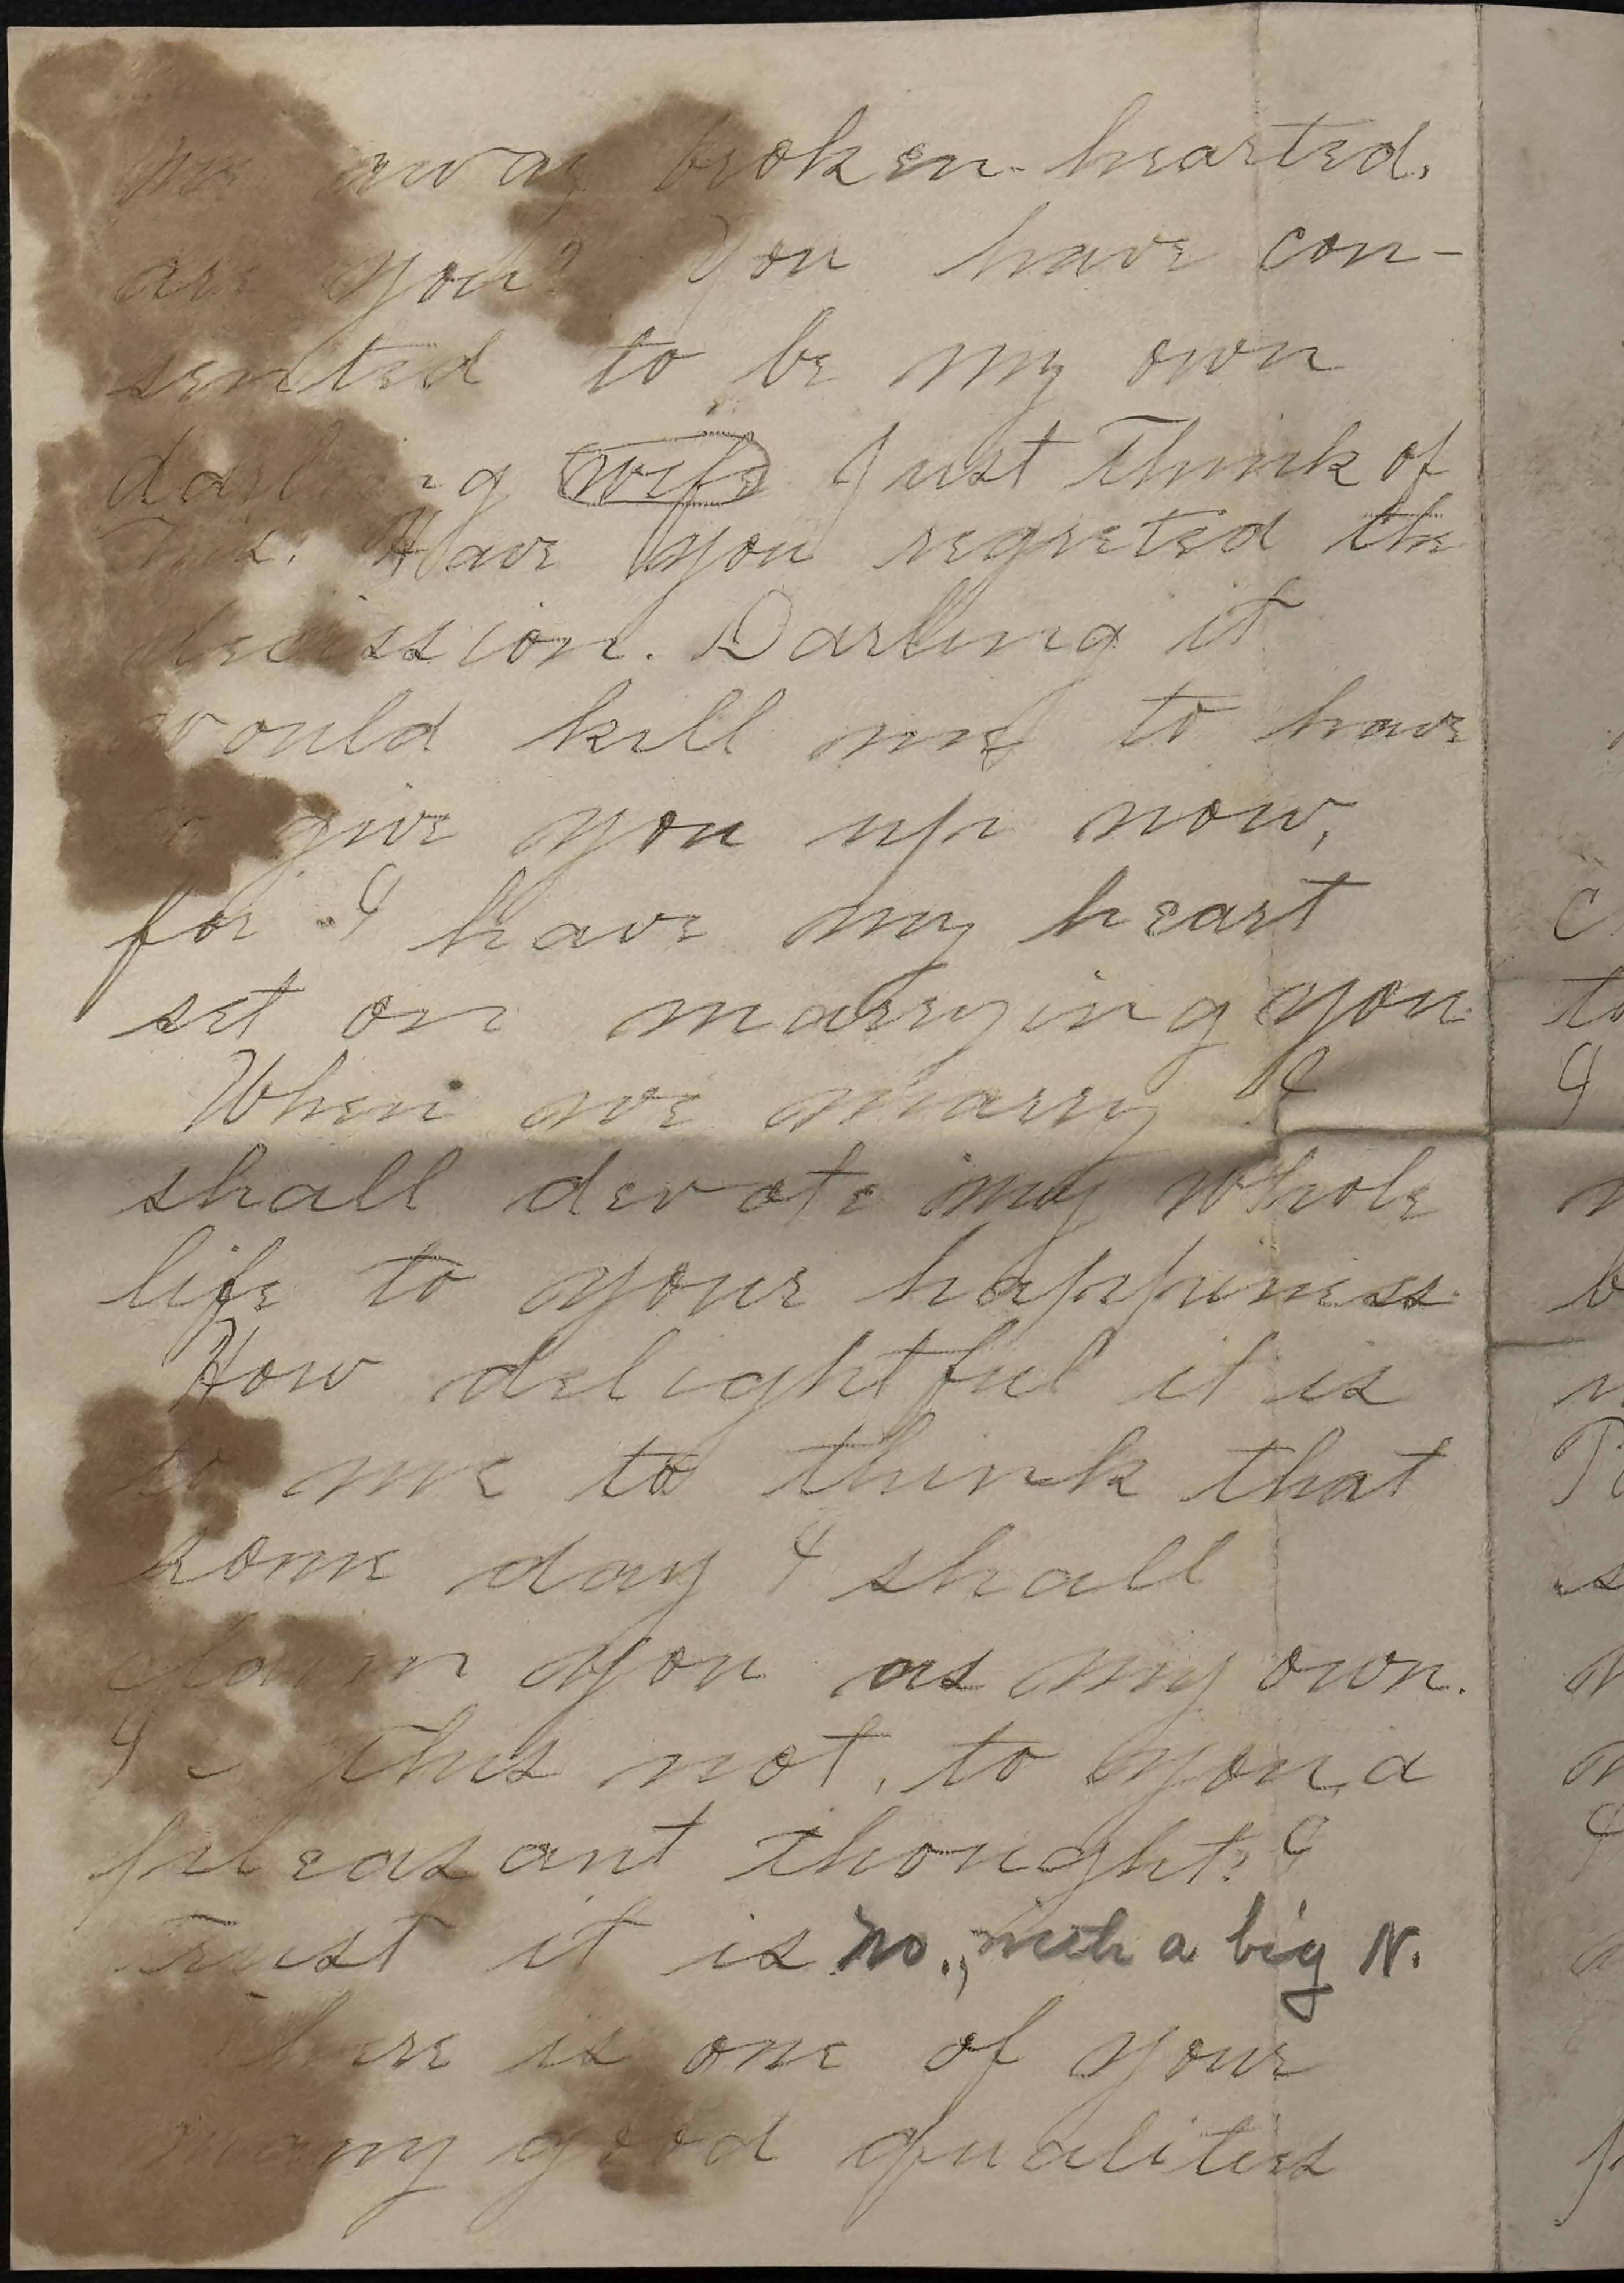 me away broken-hearted,
are you? You have con-
sented to be my own
darling wife Just Think of
This. Have you regreted the
decission. Darling it
would kill me to have
to give you up now,
for I have my heart
set on marrying you
When we marry I
shall devote my whole
life to your happiness
How delightful it is
to me to think that
some day I shall
claim you as my own.
Is this not, to you, a
pleasant thought? I
trust it is no., with a big N.
There is one of your
many good qualities